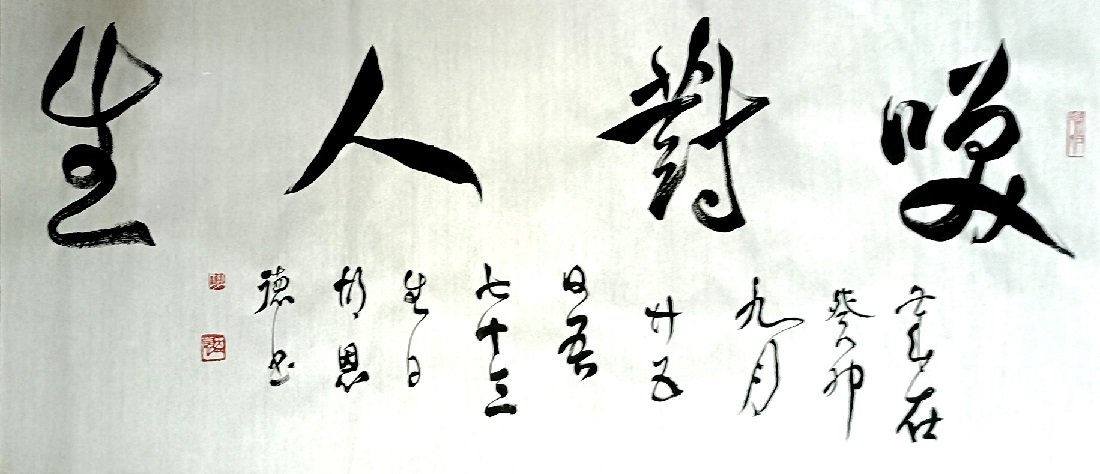 咲對人生
歲在
癸卯
九月
廿五
日吾
七十三
生日
恩
德书